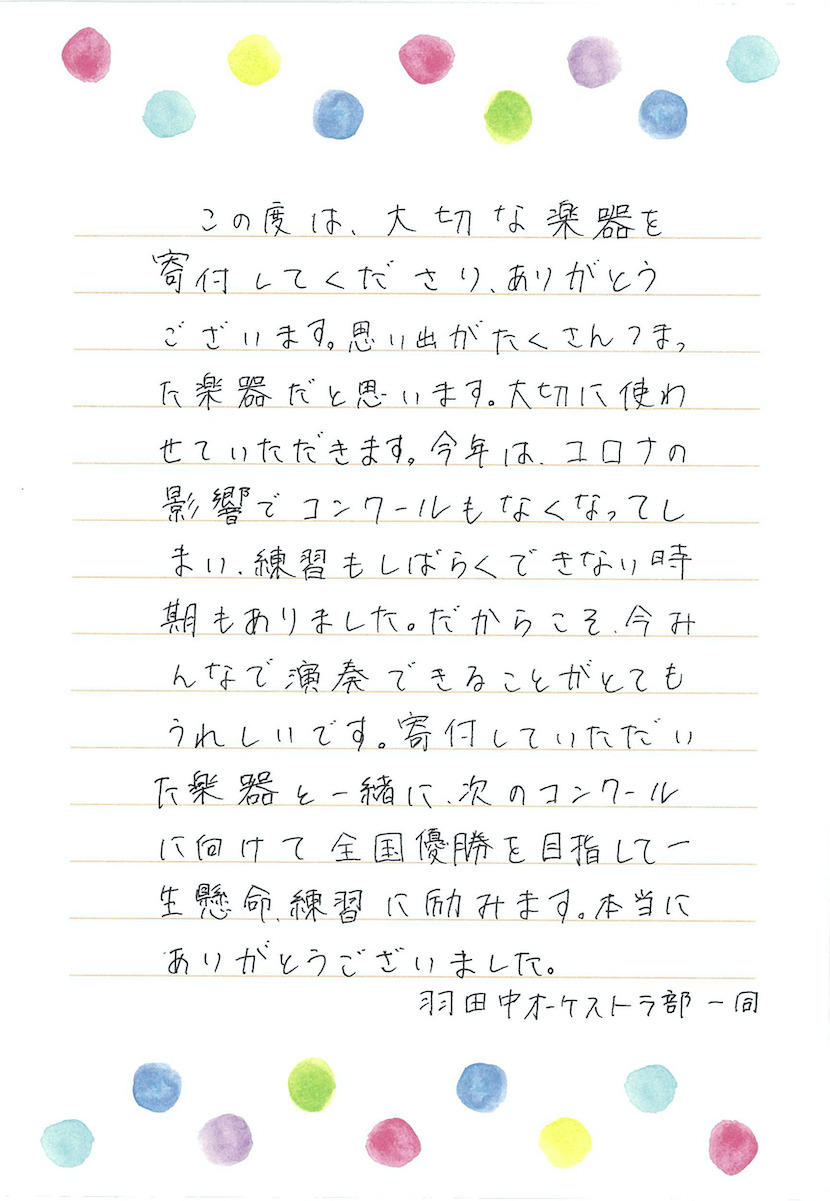 この度は、大切な楽器を
寄付してくださり、ありがとう
ございます。思い出がたくさんつまっ
た楽器だと思います。大切に使わ
せていただきます。今年は、コロナの
影響でコンクールもなくなってし
まい、練習もしばらくできない時
期もありました。だからこそ、今み
んなで演奏できることがとても
うれしいです。寄付していただい
た楽器と一緒に、次のコンクール
に向けて全国優勝を目指して一
生懸命、練習に励みます。本当に
ありがとうございました。
羽田中オーケストラ部一同